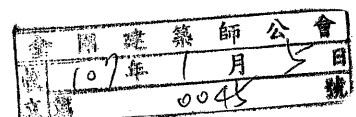 全國建築師公會
收 107年1月5日
文號 0045號